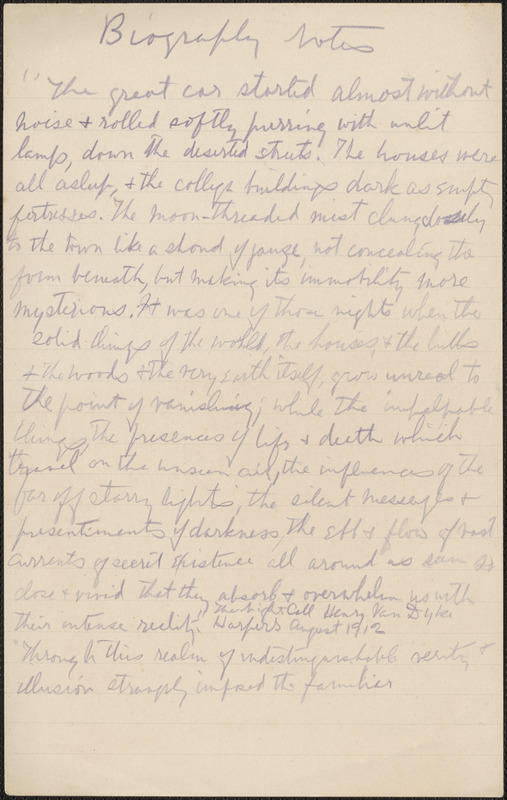 Biography Notes
"The great car started almost without
noise & rolled softly purring with unlit
lamps, down the deserted streets. The houses were
all asleep, & the college buildings dark as empty
fortresses. The moon-threaded mist clung closely
to the town like a shroud of gauze, not concealing the
form beneath, but making its immobility more
mysterious. It was one of those nights when the
solid things of the world, the houses, & the hills
& the woods & the very earth itself, grow unreal to
the point of vanishing; while the impalpable
things, the presences of life & death which
travel on the unseen air, the influences of the
far off starry lights, the silent messages &
presentiments of darkness, the ebb & flow of vast
currents of secret existence all around us seem so
close & vivid that they absorb & overwhelm us with
their intense reality." The Night Call Henry Van Dyke
Harpers August 1912
"Through this realm of indistinguishable verity &
illusion strangely imposed the familiar